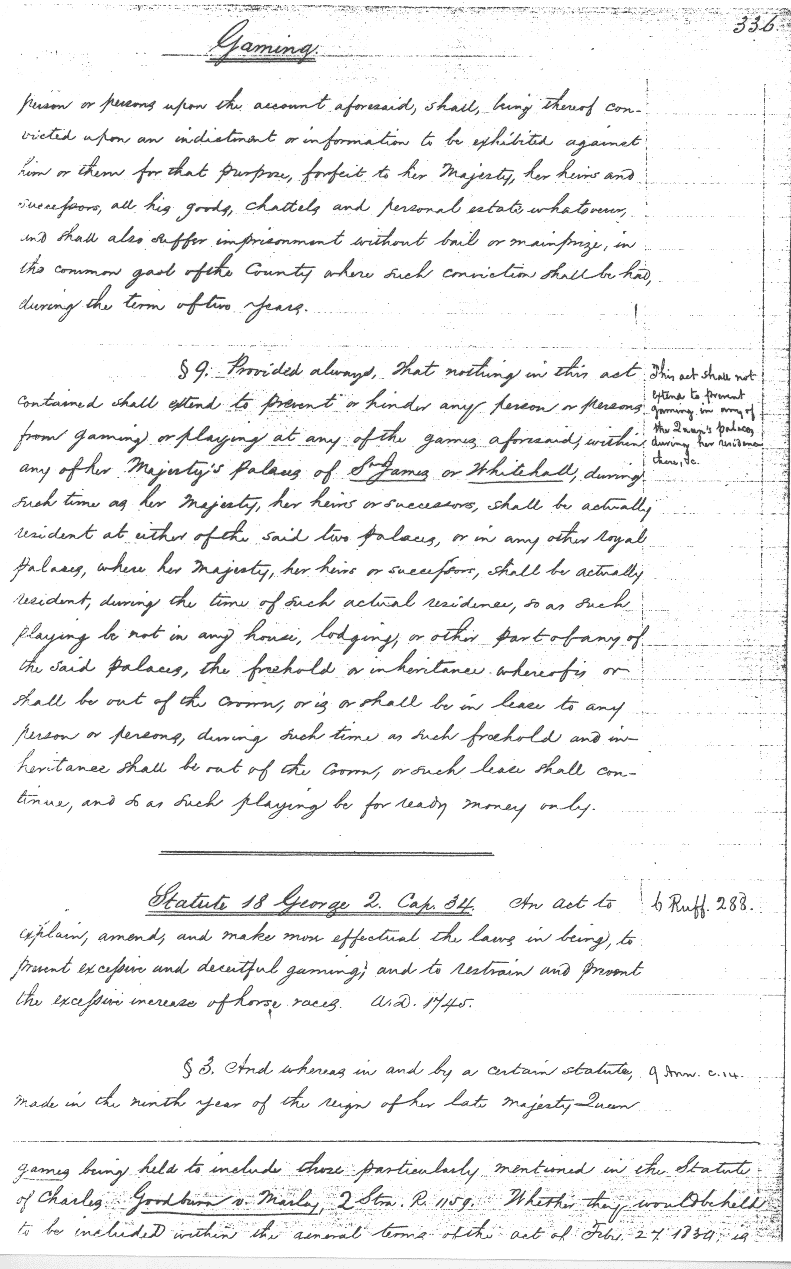 336
Gaming
person or persons upon the account aforesaid, shall, being thereof con-
victed upon an indictment or information to be exhibited against
him or them for that purpose, forfeit to her Majesty, her heirs and
successors, all his goods, chattels and personal estate whatsoever,
and shall also suffer imprisonment without bail or mainprize, in
the common gaol of the County where such conviction shall be had,
during the term of two years.
§ 9. Provided always, that nothing in this act
contained shall extend to prevent or hinder any person or persons
from gaming or playing at any of the games aforesaid, within
any of her Majesty's palaces of St. James or Whitehall, during
such time as her Majesty, her heirs or successors, shall be actually
resident at either of the said two palaces, or in any other royal
palaces, where her Majesty, her heirs or successors, shall be actually
resident, during the time of such actual residence, so as such
playing be not in any house, lodging, or other part of any of
the said palaces, the freehold or inheritance whereof is or
shall be out of the crown, or is or shall be in lease to any
person or persons, during such time as such freehold and in-
heritance shall be out of the crown, or such lease shall con-
tinue, and so as such playing be for ready money only.
This act shall not
extend to prevent
gaming in any of
the Queen's palaces
during her residence
there, &c.
Statute 18 George 2. Cap. 34. An act to
explain, amend, and make more effectual the laws in being, to
prevent excessive and deceitful gaming; and to restrain and prevent
the excessive increase of horse races. A.D. 1745.
6 Ruff. 288.
§ 3. And whereas in and by a certain statute,
made in the ninth year of the reign of her late majesty Queen
9 Ann. c. 14.
games being held to include those particularly mentioned in the Statute
of Charles. Goodburn v. Marley, 2 Stra. R. 1159. Whether they would be held
to be included within the general terms of the act of Feb. 27 1830, is